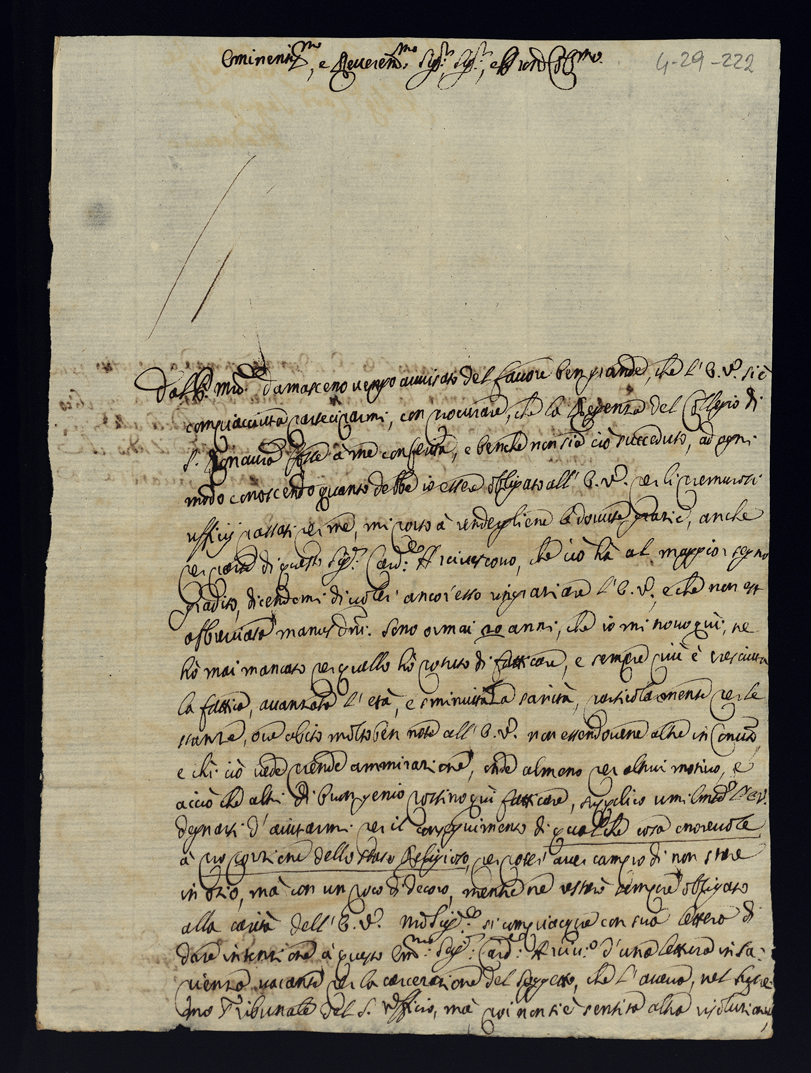 Eminentiss.mo, e Reverend.mo Sig.r, Sig.r, e Pron Col.mo
4-29-222
Dal P. Mro Damasceno vengo avvisato del favore ben grande, che l'E. V. si è
compiacciuta parteciparmi, con procurare, che la Regenza del Collegio di
S. fosse à me conferita, e benche non sia ciò succeduto, ad ogni
modo conoscendo quanto debbo io essere obligato all'E. V. per li premurosi
ufficij passati per me, mi porto à rendegliene le dovute grazie, anche
per parte di questo Sig.r Card.le Arcivescovo, che ciò hà al maggior segno
gradito, dicendomi di voler ancor'esso ringraziare l'E. V., e che non est
abbreviata manus Dni. Sono ormai 20 anni, che io mi trovo quì, ne
hò mai mancato per quello hò potuto di fatticare, e sempre più è cresciuta
la fattica, avanzata l'età, e sminuita la sanità, particolarmente per le
stanze, ove abito molto ben note all'E. V. non essendovene altre in Convto,
e chi ciò vede prende ammirazione, onde almeno per altrui motivo, e
acciò che altri di buon genio possino quì fatticare, supplico umilmte l'E. V.
degnarsi d'aiutarmi per il conseguimento di qualche cosa onorevole
à proporzione dello stato Religioso, per poter aver campo di non stare
in ozio, mà con un poco di decoro, mentre ne resterò sempre obligato
alla carità dell'E. V. Mo Sig.re si compiacque con sua lettera di
dare intenzione à questo Em.mo Sig.r Card.le Arciv.o d'una lettura in Sa-
pienza vacante per la carcerazione del soggetto, che l'aveva, nel Supre-
mo Tribunale del S. Ufficio, mà poi non si è sentita altra risoluzione,